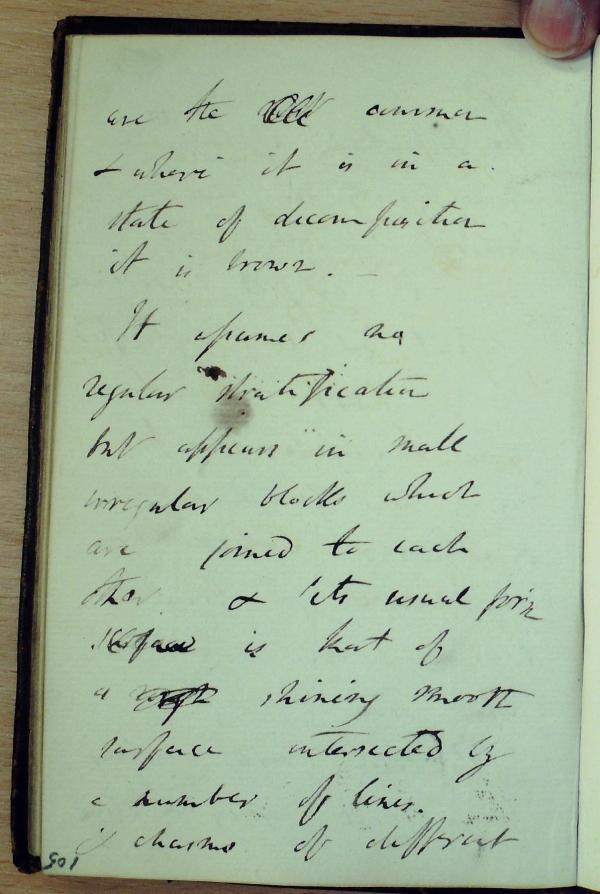 are the common
& where it is in a
state of decomposition
it is brown. —
It assumes no
regular stratification
but appears in small
irregular blocks which
are joined to each
other & its usual form
surface is that of
a rough shining smooth
surface intersected by
a number of lines.
chasms of different
105